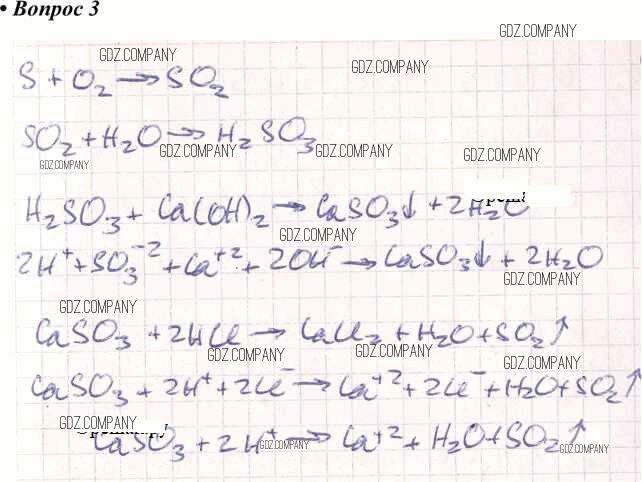 • Вопрос 3
GDZ.COMPANY
GDZ.COMPANY
GDZ.COMPANY
S + O₂ → SO₂
SO₂ + H₂O → H₂SO₃
GDZ.COMPANY
GDZ.COMPANY
GDZ.COMPANY
GDZ.COMPANY
H₂SO₃ + Ca(OH)₂ → CaSO₃↓ + 2H₂O
GDZ.COMPANY
2H⁺ + SO₃⁻² + Ca⁺² + 2OH⁻ → CaSO₃↓ + 2H₂O
GDZ.COMPANY
GDZ.COMPANY
CaSO₃ + 2HCl → CaCl₂ + H₂O + SO₂↑
GDZ.COMPANY
GDZ.COMPANY
GDZ.COMPANY
CaSO₃ + 2H⁺ + 2Cl⁻ → Ca⁺² + 2Cl⁻ + H₂O + SO₂↑
GDZ.COMPANY
CaSO₃ + 2H⁺ → Ca⁺² + H₂O + SO₂↑
GDZ.COMPANY
GDZ.COMPANY